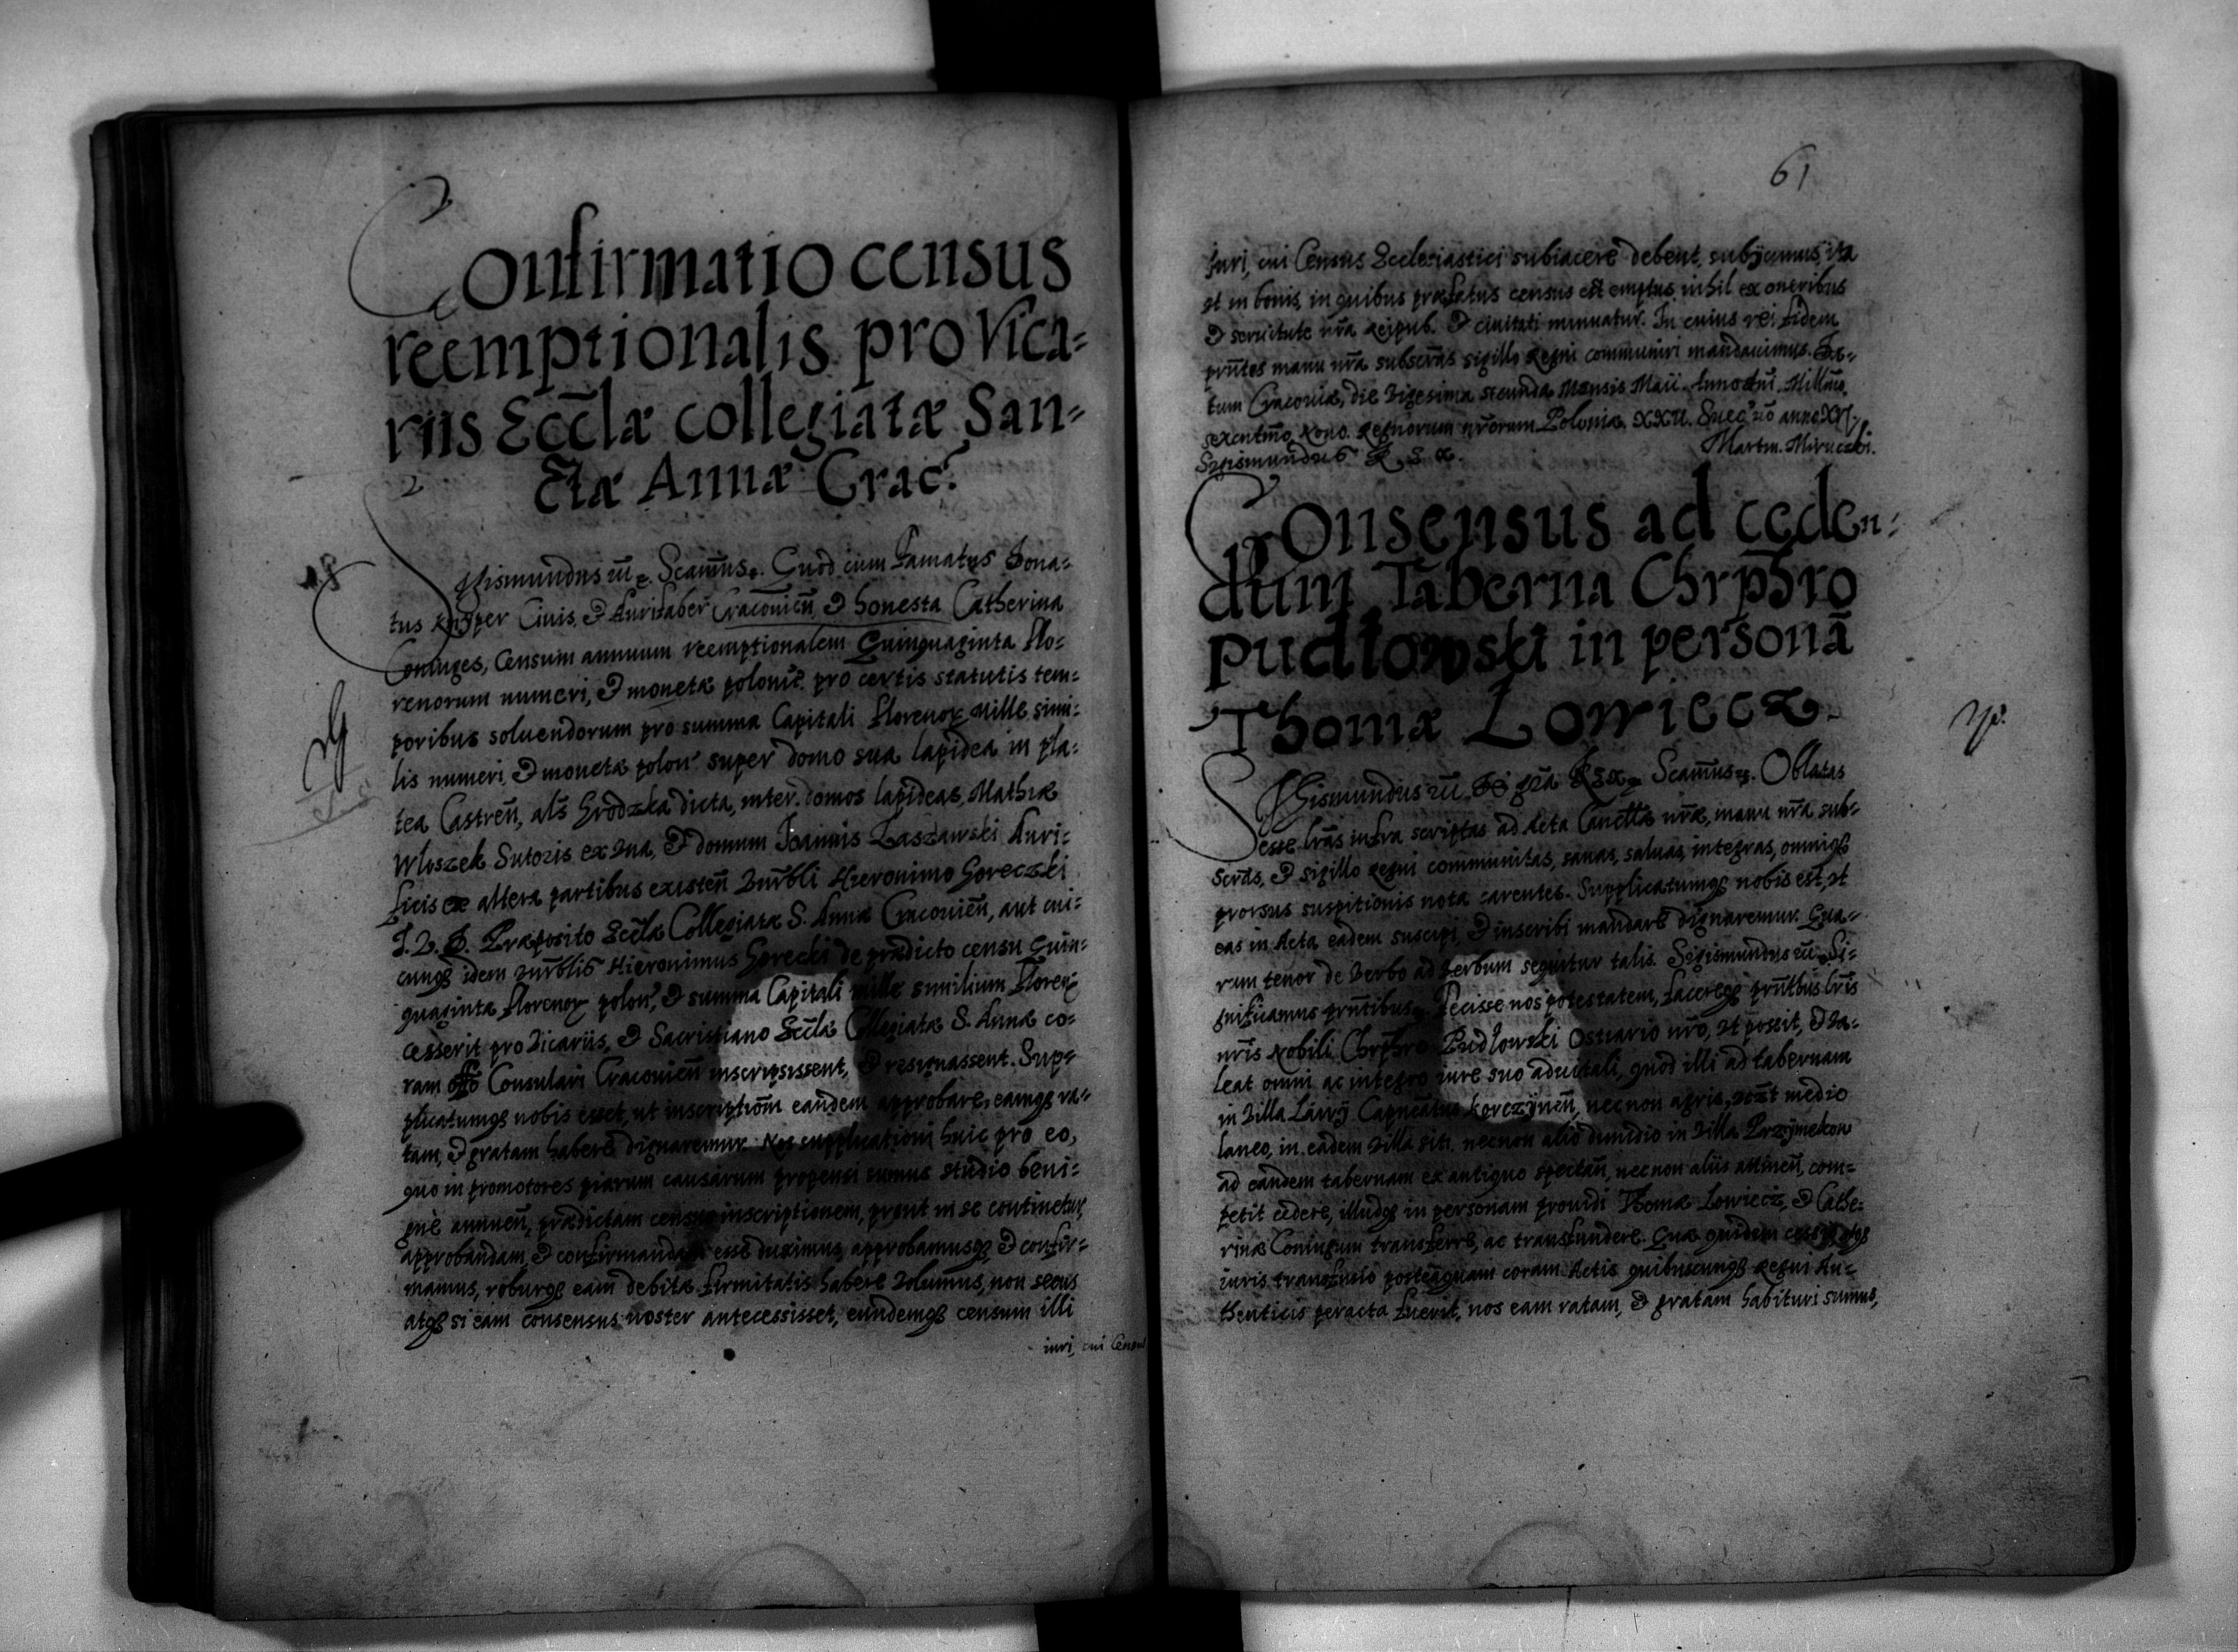 Confirmatio census
reemptionalis pro Vica-
riis Eccłæ collegiatæ San-
ctæ Annæ Crac.
Sigismundus III. Scamus. Quod cum Famatus Dona-
tus Civis, & Aurifaber Cracovień, & honesta Catherina
Coniuges, Censum annuum reemptionalem Quinquaginta Flo-
renorum numeri, & monetæ polonic. pro certis statutis tem-
poribus soluendorum pro summa Capitali Florenor Mille simi-
lis numeri, & monetæ polon super domo sua lapidea in pla-
tea Castreń, als Grodzka dicta, inter domos lapideas, Mathiæ
Wloszek Sutoris ex una, & domum Joannis Zaszawski Auri-
ficis ex altera partibus existeń Vnrbli Hieronimo Goreczki
J.V.D. Præposito Eccłæ Collegiatæ S. Annæ Cracovień, aut cui-
cunqз idem Vnrblis Hieronimus Gorecki de prædicto censu Quin-
quaginta Florenor polon, & summa Capitali mille similium Floren
cesserit pro Vicariis, & Sacristiano Eccłæ Collegiatæ S. Annæ co-
ram offo Consulari Cracovień inscripsissent, & resignassent. Sup-
plicatumqз nobis esset, ut inscriptiom eandem approbare, eamqз ra-
tam, & gratam habere dignaremur. Nos supplicationi huic pro eo,
quo in promotores piarum causarum propensi sumus studio beni-
gne annueń, prædictam census inscriptionem, prout in se continetur,
approbandam, & confirmandam esse duximus, approbamusqз, & confir-
mamus, roburqз eam debitæ firmitatis habere Volumus, non secus
atqз si eam consensus noster antecessisset, eundemqз censum illi
iuri, cui Census
61
Iuri, cui Census Ecclesiastici subiacere debent, subijcimus, ita
ut in bonis, in quibus præfatus census est emptus, nihil ex oneribus
& servitute nra Reipub. & civitati minuatur. In cuius rei fidem
prntes manu nra subscras sigillo Regni communiri mandavimus. Da-
tum Cracoviæ, die Vigesima secunda Mensis Maii. Anno dni Millmo
sexcentmo, Nono. Regnorum nrorum Poloniæ. XXII. Suec. vo anno XVI.
Sigismundus Rex. Martin. Miruczki.
Consensus ad ceden-
dum Taberna Chrphro
Pudłowski in personā
Thomæ Lowiecz.
Sigismundus III. Dei gra Rex. Scamus. Oblatas
esse lras infra scriptas ad Acta Cancłłæ nræ, manu nra sub-
scras, & sigillo Regni communitas, sanas, salvas, integras, omniqз
prorsus suspitionis nota carentes. Supplicatumqз nobis est, ut
eas in Acta eadem suscipi, & inscribi mandare dignaremur. Qua-
rum tenor de Verbo ad Verbum sequitur talis. Sigismundus III. Si-
gnificamus prntibus. Fecisse nos potestatem, facereqз prntbus lris
nris Nobili Chrphro Pudłowski Ostiario nro, ut possit, & Va-
leat omni ac integro iure suo aduitali, quod illi ad tabernam
in Villa Capneatus Korczyneń, necnon agris, medio
laneo, in eadem Villa siti. necnon alio dimidio in Villa Przymekow
ad eandem tabernam ex antiquo spectań, necnon aliis attineń, com-
petit cedere, illudqз in personam providi Thomæ Lowiecz, & Cathe-
rinæ Coniugum transferre, ac transfundere. Quæ quidem cessio atqз
iuris transfusio posteaquam coram Actis quibuscunqз Regni Au-
thenticis peracta fuerit, nos eam ratam, & gratam habituri sumus,